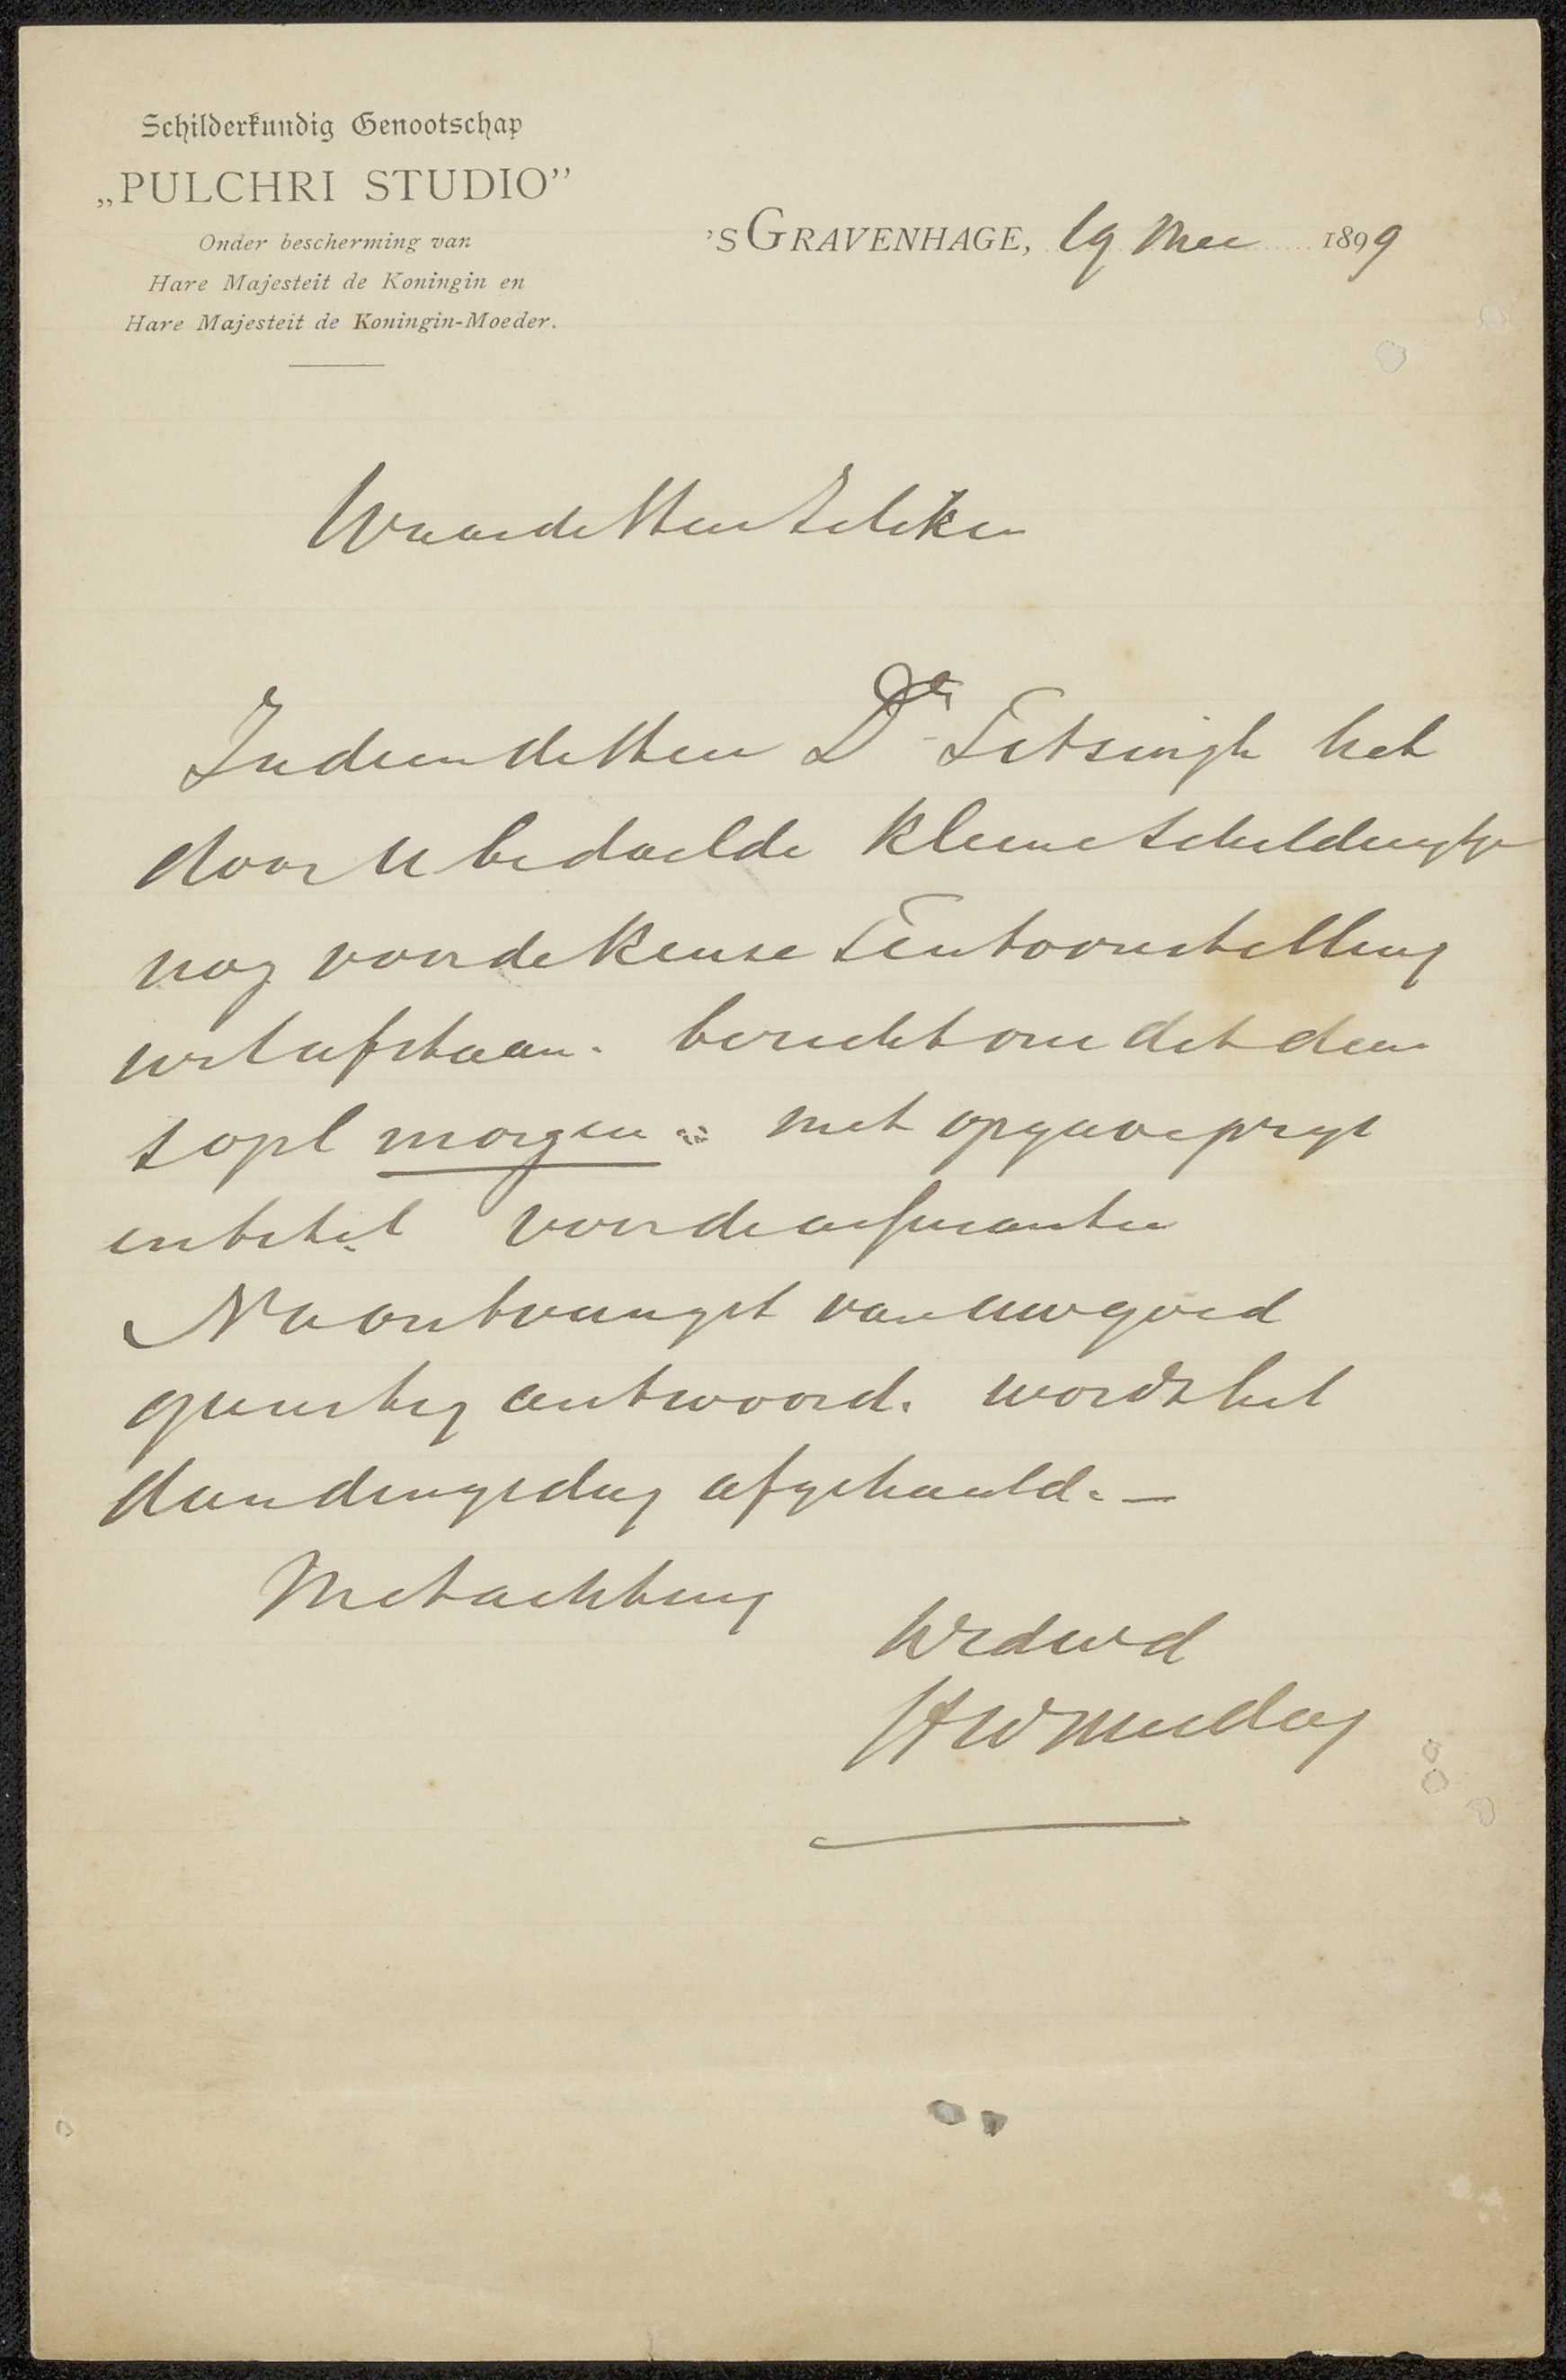 Schilderkundig Genootschap
„PULCHRI STUDIO”
Onder bescherming van
Hare Majesteit de Koningin en
Hare Majesteit de Koningin-Moeder.
'SGRAVENHAGE, 19 Mei 1899
Waarde Heer
Indien de Heer Dr Titsingh het
door U bedoelde kleine schilderijtje
nog voor de Keuze Tentoonstelling
wil afstaan. bericht ons dit dan
s.v.pl morgen met opgave prijs
en titel voor de assurantie
Na ontvangst van uw goed
gunstig antwoord. wordt het
dan dingsdag afgehaald. —
Met achting
HW Mesdag